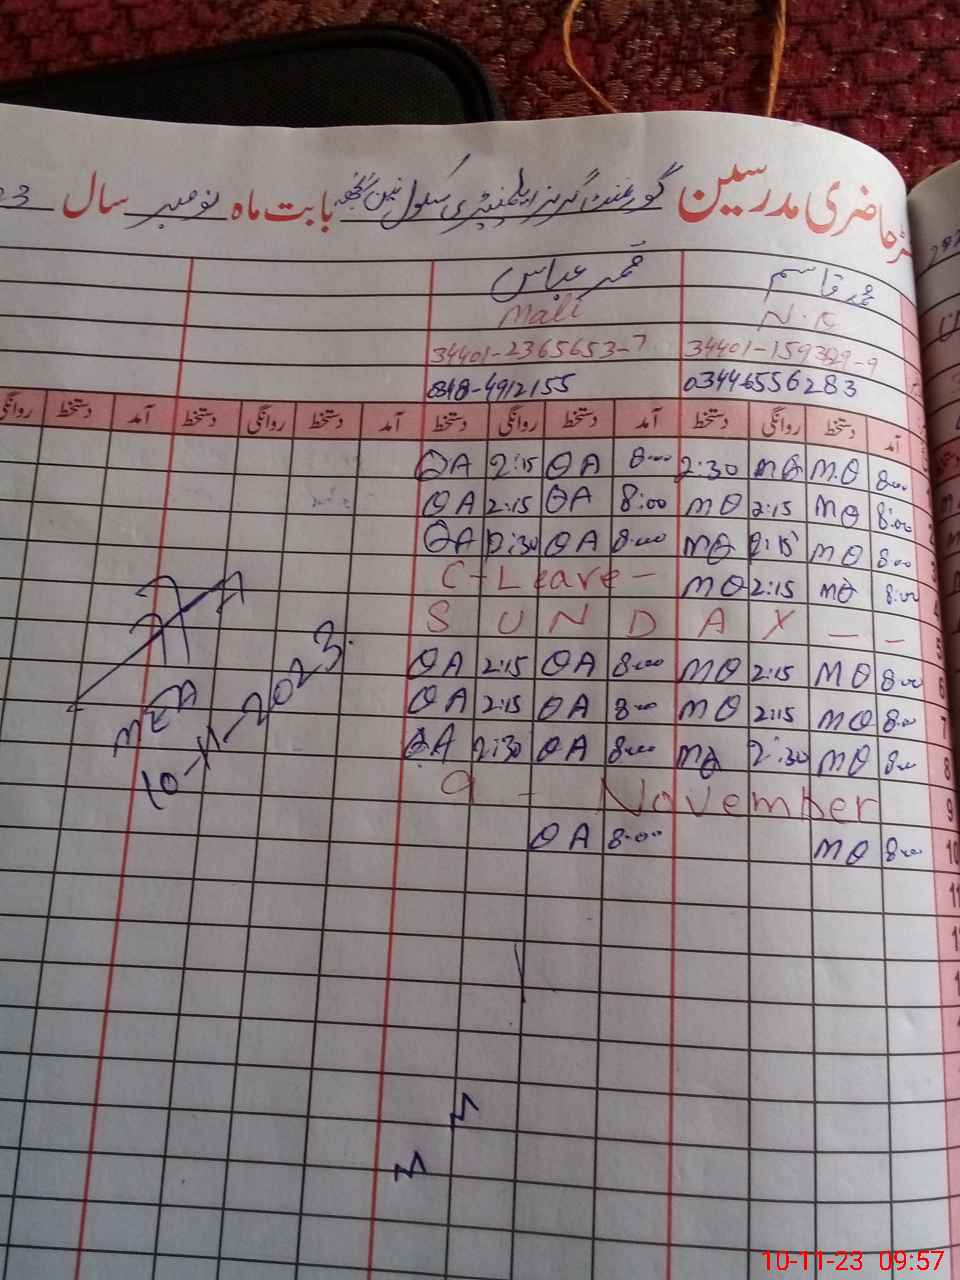 رجسٹر حاضری مدرسین گورنمنٹ گرلز ایلیمنٹری سکول بابت ماہ نومبر سال 23
محمد قاسم قمر عباس
N.Q Mali
34401-2365653-7
0348-4912155 03446556283
آمد دستخط روانگی دستخط آمد دستخط روانگی دستخط آمد دستخط روانگی دستخط آمد دستخط روانگی
QA 2:15 QA 8:00 2:30 MQ MQ 8:00
QA 2:15 QA 8:00 MQ 2:15 MQ 8:00 2
QA 2:30 QA 8:00 MQ 2:15 MQ 8:00 3
C-Leave- MQ 2:15 MQ 8:00 4
SUNDAY - - 5
QA 2:15 QA 8:00 MQ 2:15 MQ 8:00 6
QA 2:15 QA 8:00 MQ 2:15 MQ 8:00 7
QA 2:30 QA 8:00 MQ 2:30 MQ 8:00 8
9 - November 9
QA 8:00 MQ 8:00 10
11
MEA
10-11-2023.
10-11-23 09:57